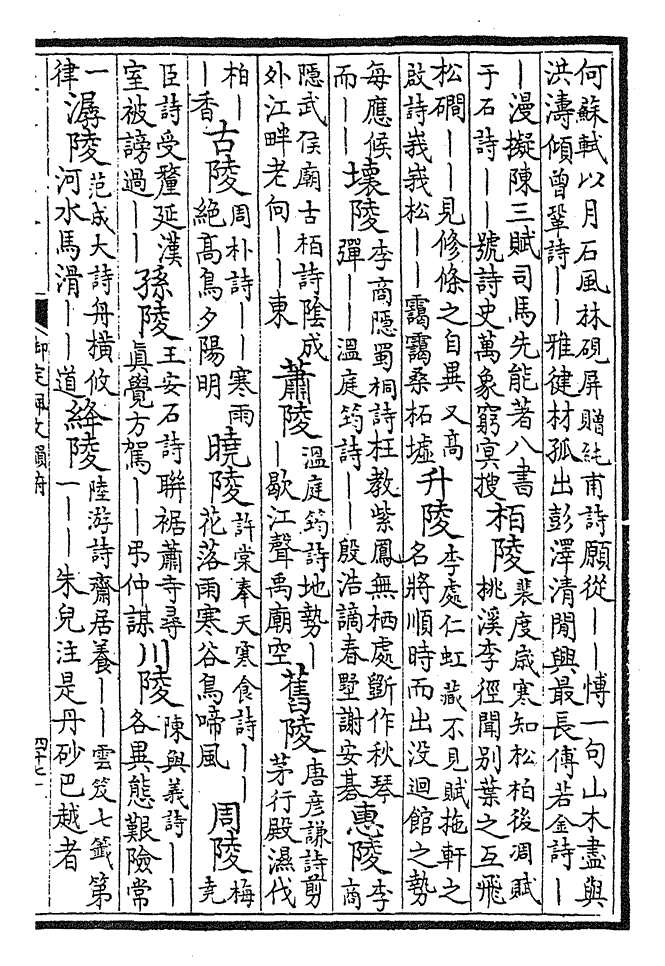 何蘇軾以月石風林硯屏贈純甫詩願從丨丨愽一句山木盡與
洪濤傾曾鞏詩丨丨雅健材孤出彭澤清閒興最長傅若金詩丨
丨漫擬陳三賦司馬先能著八書
于石詩丨丨號詩史萬象窮冥搜
柏陵
裴度歲寒知松柏後凋賦
桃溪李徑聞別葉之互飛
松磵丨丨見修條之自異又高
啟詩峩峩松丨丨靄靄桑柘墟
升陵
李處仁虹藏不見賦拖軒之
名將順時而出没迴館之勢
每應候
而丨丨
壞陵
李商隱蜀桐詩枉教紫鳳無栖處斵作秋琴
彈丨丨溫庭筠詩丨丨殷浩謫春墅謝安碁
惠陵
李
商
隱武侯廟古栢詩陰成
外江畔老向丨丨東
蕭陵
溫庭筠詩地勢丨
丨歇江聲禹廟空
舊陵
唐彦謙詩剪
茅行殿濕伐
柏丨
丨香
古陵
周朴詩丨丨寒雨
絶高鳥夕陽明
曉陵
許棠奉天寒食詩丨丨
花落雨寒谷鳥啼風
周陵
梅
堯
臣詩受釐延漢
室被謗過丨丨
孫陵
王安石詩聨裾蕭寺尋
眞覺方駕丨丨弔仲謀
川陵
陳與義詩丨丨
各異態艱險常
一
律
潺陵
范成大詩舟横攸
河水馬滑丨丨道
絳陵
陸游詩齋居養丨丨雲笈七籤第
一丨丨朱兒注是丹砂巴越者
御定佩文韻府
四十七